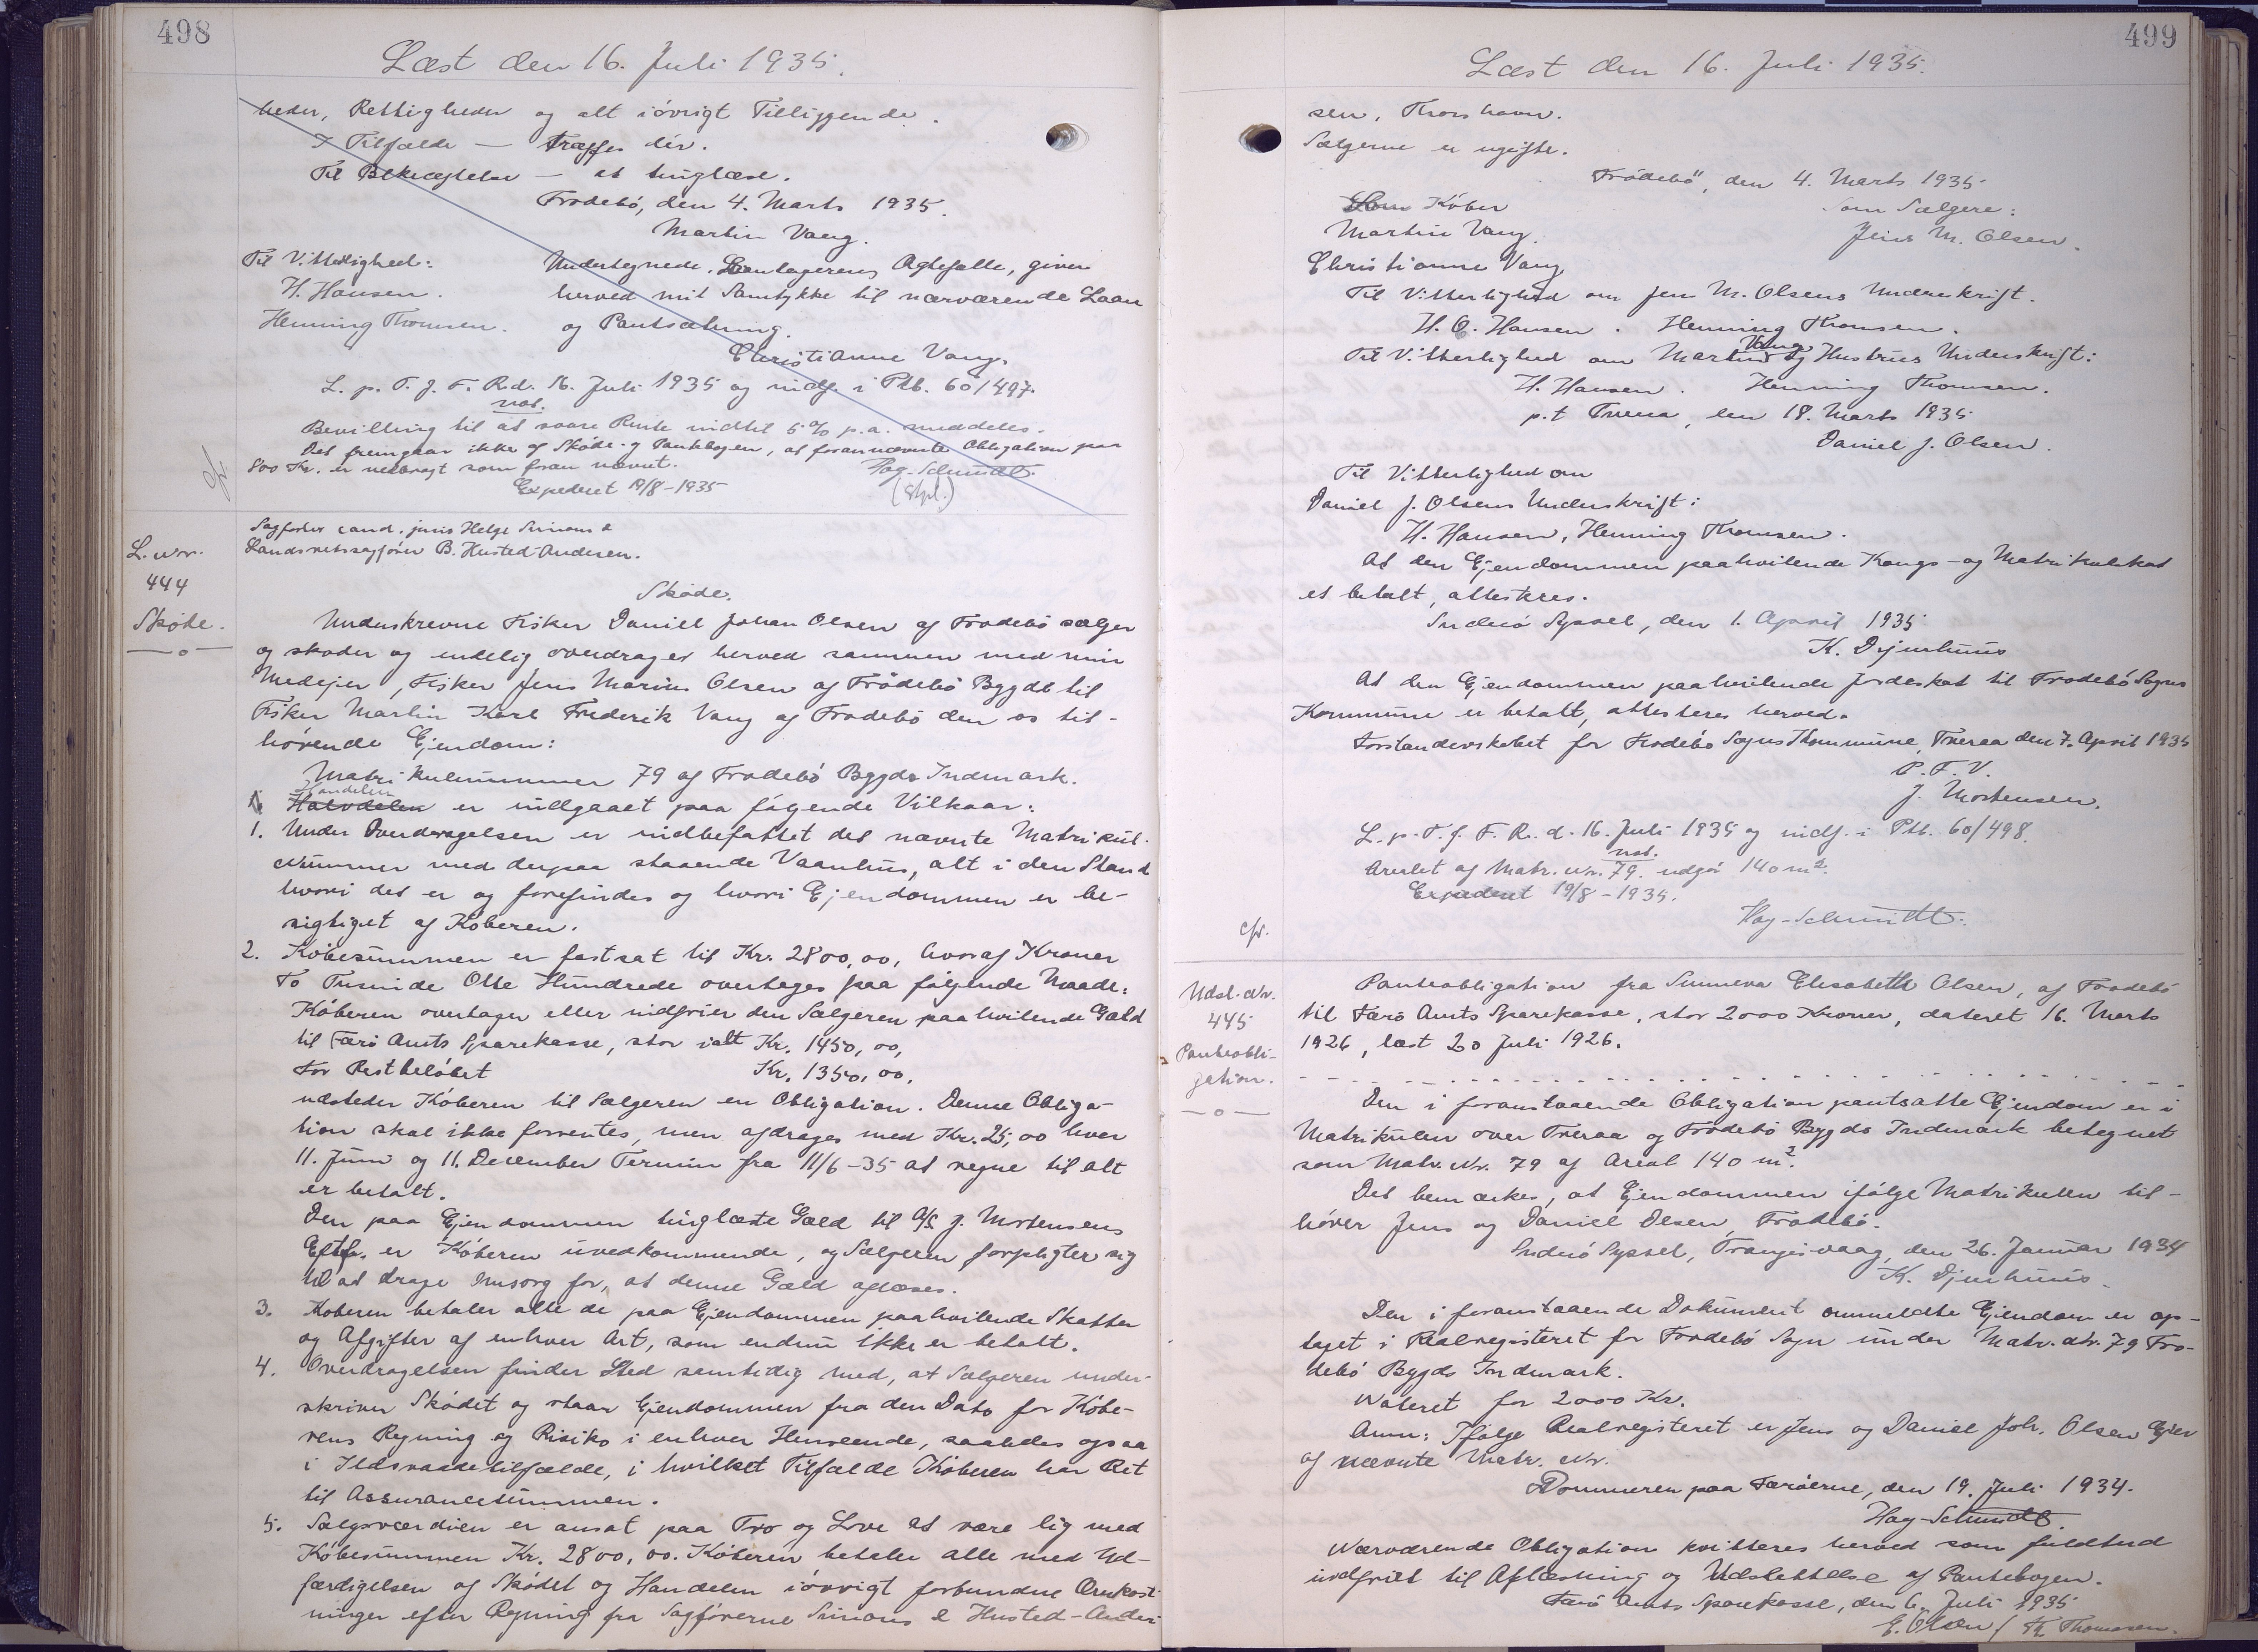 498
Læst den 16. Juli 1935.
heder, Rettigheder og alt iövrigt Tilliggende.
I Tilfælde — træffes her.
Til Bekræftelse — at tinglæse.
Frodebö, den 4. Marts 1935.
Martin Vang.
Til Vitterlighed:
H. Hansen.
Henning Thomsen.
Undertegnede, Laantagerens Ægtefælle, giver
herved mit Samtykke til nærværende Laan
og Pantsætning.
Christianne Vang.
L. p. T. f. F. R. d. 16. Juli 1935 og indf. i Ptb. 60/497.
not.
Bevilling til at svare Rente indtil 6% p.a. meddeles.
Det fremgaar ikke af Sköde- og Pantebogen, at forannævnte Obligation paa
800 Kr. er nedbragt som foran nævnt.
Hag-Schmidt.
Expederet 19/8-1935
(Stpl.)
L. Nr.
444
Sköde.
Sagförer cand. juris Helge Simons &
Landsretssagförer B. Husted-Andersen.
Sköde.
Underskrevne Fisker Daniel Johan Olsen af Frodebö sælger
og sköder og endelig overdrager herved sammen med min
Medejer, Fisker Jens Marius Olsen af Frödebö Bygds til
Fisker Martin Karl Frederik Vang af Frodebö den os til-
hörende Ejendom:
Matrikulnummer 79 af Frodebö Bygds Indmark.
Handelen
Halvdelen er indgaaet paa fölgende Vilkaar:
1. Under Overdragelsen er indbefattet det nævnte Matrikul-
nummer med derpaa staaende Vaanhus, alt i den Stand
hvori det er og forefindes og hvori Ejendommen er be-
sigtiget af Köberen.
2. Köbesummen er fastsat til Kr. 2800,00, hvoraf Kroner
To Tusinde Otte Hundrede overtages paa fölgende Maade:
Köberen overtager eller indfrier den Sælgeren paahvilende Gæld
til Færö Amts Sparekasse, stor ialt Kr. 1450,00,
For Restbelöbet Kr. 1350,00,
udsteder Köberen til Sælgeren en Obligation. Denne Obliga-
tion skal ikke forrentes, men afdrages med Kr. 25,00 hver
11. Juni og 11. December Termin fra 11/6-35 at regne til alt
er betalt.
Den paa Ejendommen tinglæste Gæld til A/S J. Mortensens
Eftf. er Köberen uvedkommende, og Sælgeren forpligter sig
til at drage Omsorg for, at denne Gæld aflæses.
3. Köberen betaler alle de paa Ejendommen paahvilende Skatter
og Afgifter af enhver Art, som endnu ikke er betalt.
4. Overdragelsen finder Sted samtidig med, at Sælgeren under-
skriver Sködet og staar Ejendommen fra den Dato for Köbe-
rens Regning og Risiko i enhver Henseende, saaledes ogsaa
i Ildsvaadetilfælde, i hvilket Tilfælde Köberen har Ret
til Assurancesummen.
5. Salgsværdien er ansat paa Tro og Love at være lig med
Köbesummen Kr. 2800,00. Köberen betaler alle med Ud-
færdigelsen af Sködet og Handelen iövrigt forbundne Omkost-
ninger efter Regning fra Sagförerne Simons & Husted-Ander-
499
Læst den 16. Juli 1935.
sen, Thorshavn.
Sælgerne er ugifte.
Frödebö, den 4. Marts 1935.
Som Köber
Som Sælgere:
Martin Vang.
Jens M. Olsen.
Christianne Vang
Til Vitterlighed om Jens M. Olsens Underskrift.
H. O. Hansen. Henning Thomsen.
Til Vitterlighed om Martin Vang og Hustrus Underskrift:
H. Hansen. Henning Thomsen.
p.t Tveraa, den 18. Marts 1935
Daniel J. Olsen.
Til Vitterlighed om
Daniel J. Olsens Underskrift:
H. Hansen, Henning Thomsen.
At den Ejendommen paahvilende Kongs- og Matrikulskat
er betalt, attesteres.
Suderö Syssel, den 1. April 1935
K. Djurhuus
At den Ejendommen paahvilende Jordeskat til Frodebö Sogns
Kommune er betalt, attesteres herved.
Forstanderskabet for Frodebö Sogns Kommune, Tveraa den 7. April 1935
P. F. V.
J. Mortensen.
L. p. T. f. F. R. d. 16. Juli 1935 og indf. i Ptb. 60/498.
not.
Arealet af Matr. Nr. 79. udgör 140 m².
Expederet 19/8-1935.
Hag-Schmidt.
cfr.
Udsl. Nr.
445
Panteobli-
gation.
Panteobligation fra Sunneva Elisabeth Olsen, af Frodebö
til Færö Amts Sparekasse, stor 2000 Kroner, dateret 16. Marts
1926, læst 20 Juli 1926.
Den i foranstaaende Obligation pantsatte Ejendom er i
Matrikulen over Tveraa og Frodebö Bygds Indmark betegnet
som Matr. Nr. 79 af Areal 140 m².
Det bemærkes, at Ejendommen ifölge Matrikulen til-
hörer Jens og Daniel Olsen, Frodebö.
Suderö Syssel, Trangisvaag, den 26. Januar 1934
K. Djurhuus.
Den i foranstaaende Dokument ommeldte Ejendom er op-
taget i Realregisteret for Frodebö Sogn under Matr. Nr. 79 Fro-
debö Bygds Indmark.
Noteret for 2000 Kr.
Anm: Ifölge Realregisteret er Jens og Daniel Joh. Olsen Ejer
af nævnte Matr. Nr.
Dommeren paa Færöerne, den 19. Juli 1934.
Hag-Schmidt.
Nærværende Obligation kvitteres herved som fuldtud
indfriet til Aflæsning og Udslettelse af Pantebogen.
Færö Amts Sparekasse, den 6. Juli 1935
E. Olsen / Th. Thomesen.